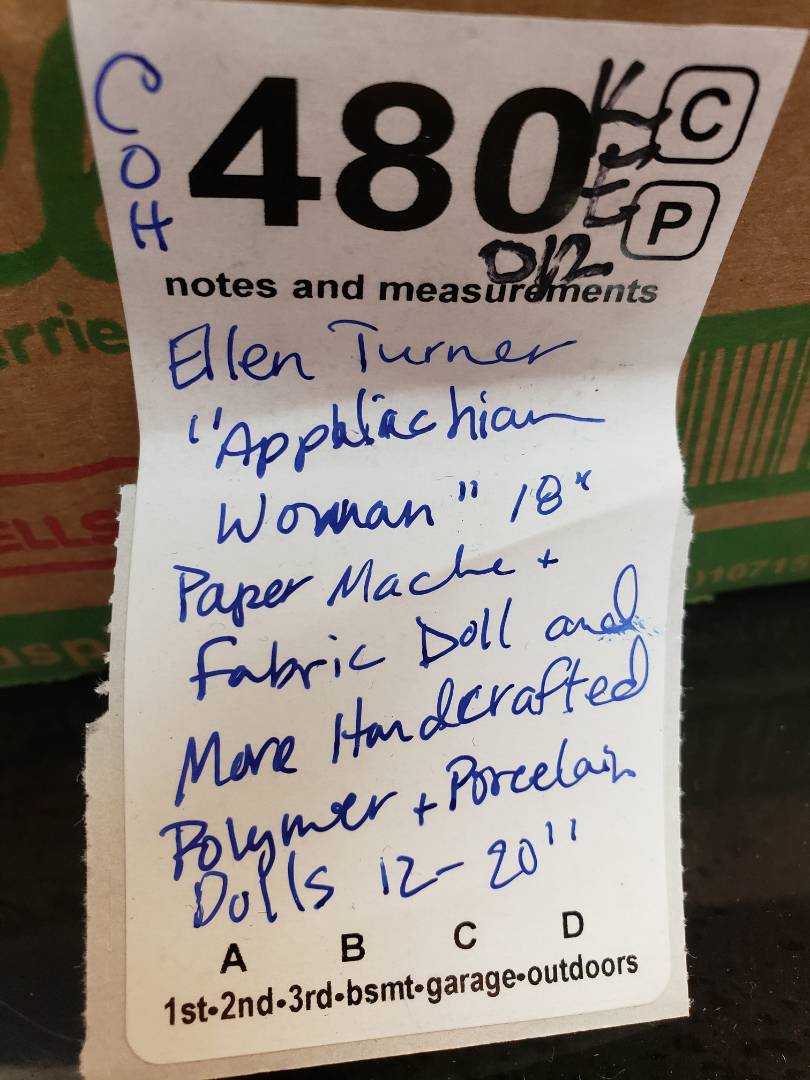 COH
480
C
P
012
notes and measurements
Ellen Turner
"Applaichian
Woman" 18"
Paper Mache +
Fabric Doll and
More Handcrafted
Polymer + Porcelain
Dolls 12-20"
A B C D
1st•2nd•3rd•bsmt•garage•outdoors
rrie
ELLS
asp
10715